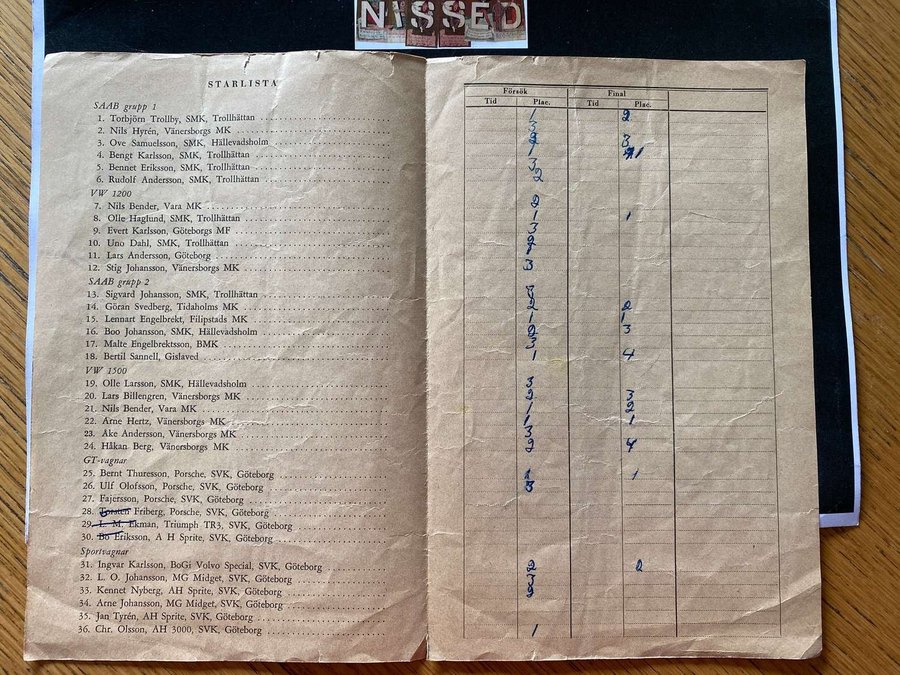 NISSED
STARLISTA
SAAB grupp 1
1. Torbjörn Trollby, SMK, Trollhättan
2. Nils Hyrén, Vänersborgs MK
3. Ove Samuelsson, SMK, Hällevadsholm
4. Bengt Karlsson, SMK, Trollhättan
5. Bennet Eriksson, SMK, Trollhättan
6. Rudolf Andersson, SMK, Trollhättan
VW 1200
7. Nils Bender, Vara MK
8. Olle Haglund, SMK, Trollhättan
9. Evert Karlsson, Göteborgs MF
10. Uno Dahl, SMK, Trollhättan
11. Lars Andersson, Göteborg
12. Stig Johansson, Vänersborgs MK
SAAB grupp 2
13. Sigvard Johansson, SMK, Trollhättan
14. Göran Svedberg, Tidaholms MK
15. Lennart Engelbrekt, Filipstads MK
16. Boo Johansson, SMK, Hällevadsholm
17. Malte Engelbrektsson, BMK
18. Bertil Sannell, Gislaved
VW 1500
19. Olle Larsson, SMK, Hällevadsholm
20. Lars Billengren, Vänersborgs MK
21. Nils Bender, Vara MK
22. Arne Hertz, Vänersborgs MK
23. Åke Andersson, Vänersborgs MK
24. Håkan Berg, Vänersborgs MK
GT-vagnar
25. Bernt Thuresson, Porsche, SVK, Göteborg
26. Ulf Olofsson, Porsche, SVK, Göteborg
27. Fajersson, Porsche, SVK, Göteborg
28. Torsten Friberg, Porsche, SVK, Göteborg
29. L. M. Ekman, Triumph TR3, SVK, Göteborg
30. Bo Eriksson, A H Sprite, SVK, Göteborg
Sportvagnar
31. Ingvar Karlsson, BoGi Volvo Special, SVK, Göteborg
32. L. O. Johansson, MG Midget, SVK, Göteborg
33. Kennet Nyberg, AH Sprite, SVK, Göteborg
34. Arne Johansson, MG Midget, SVK, Göteborg
35. Jan Tyrén, AH Sprite, SVK, Göteborg
36. Chr. Olsson, AH 3000, SVK, Göteborg
Försök Final
Tid Plac. Tid Plac.
1 2
3
2 3
1 1
3
2
2
1 1
3
2
1
3
3
2 2
1 1
2 3
3
1 4
3
2 3
1 2
1 1
3
2 4
1 1
3
2 2
3
2
1